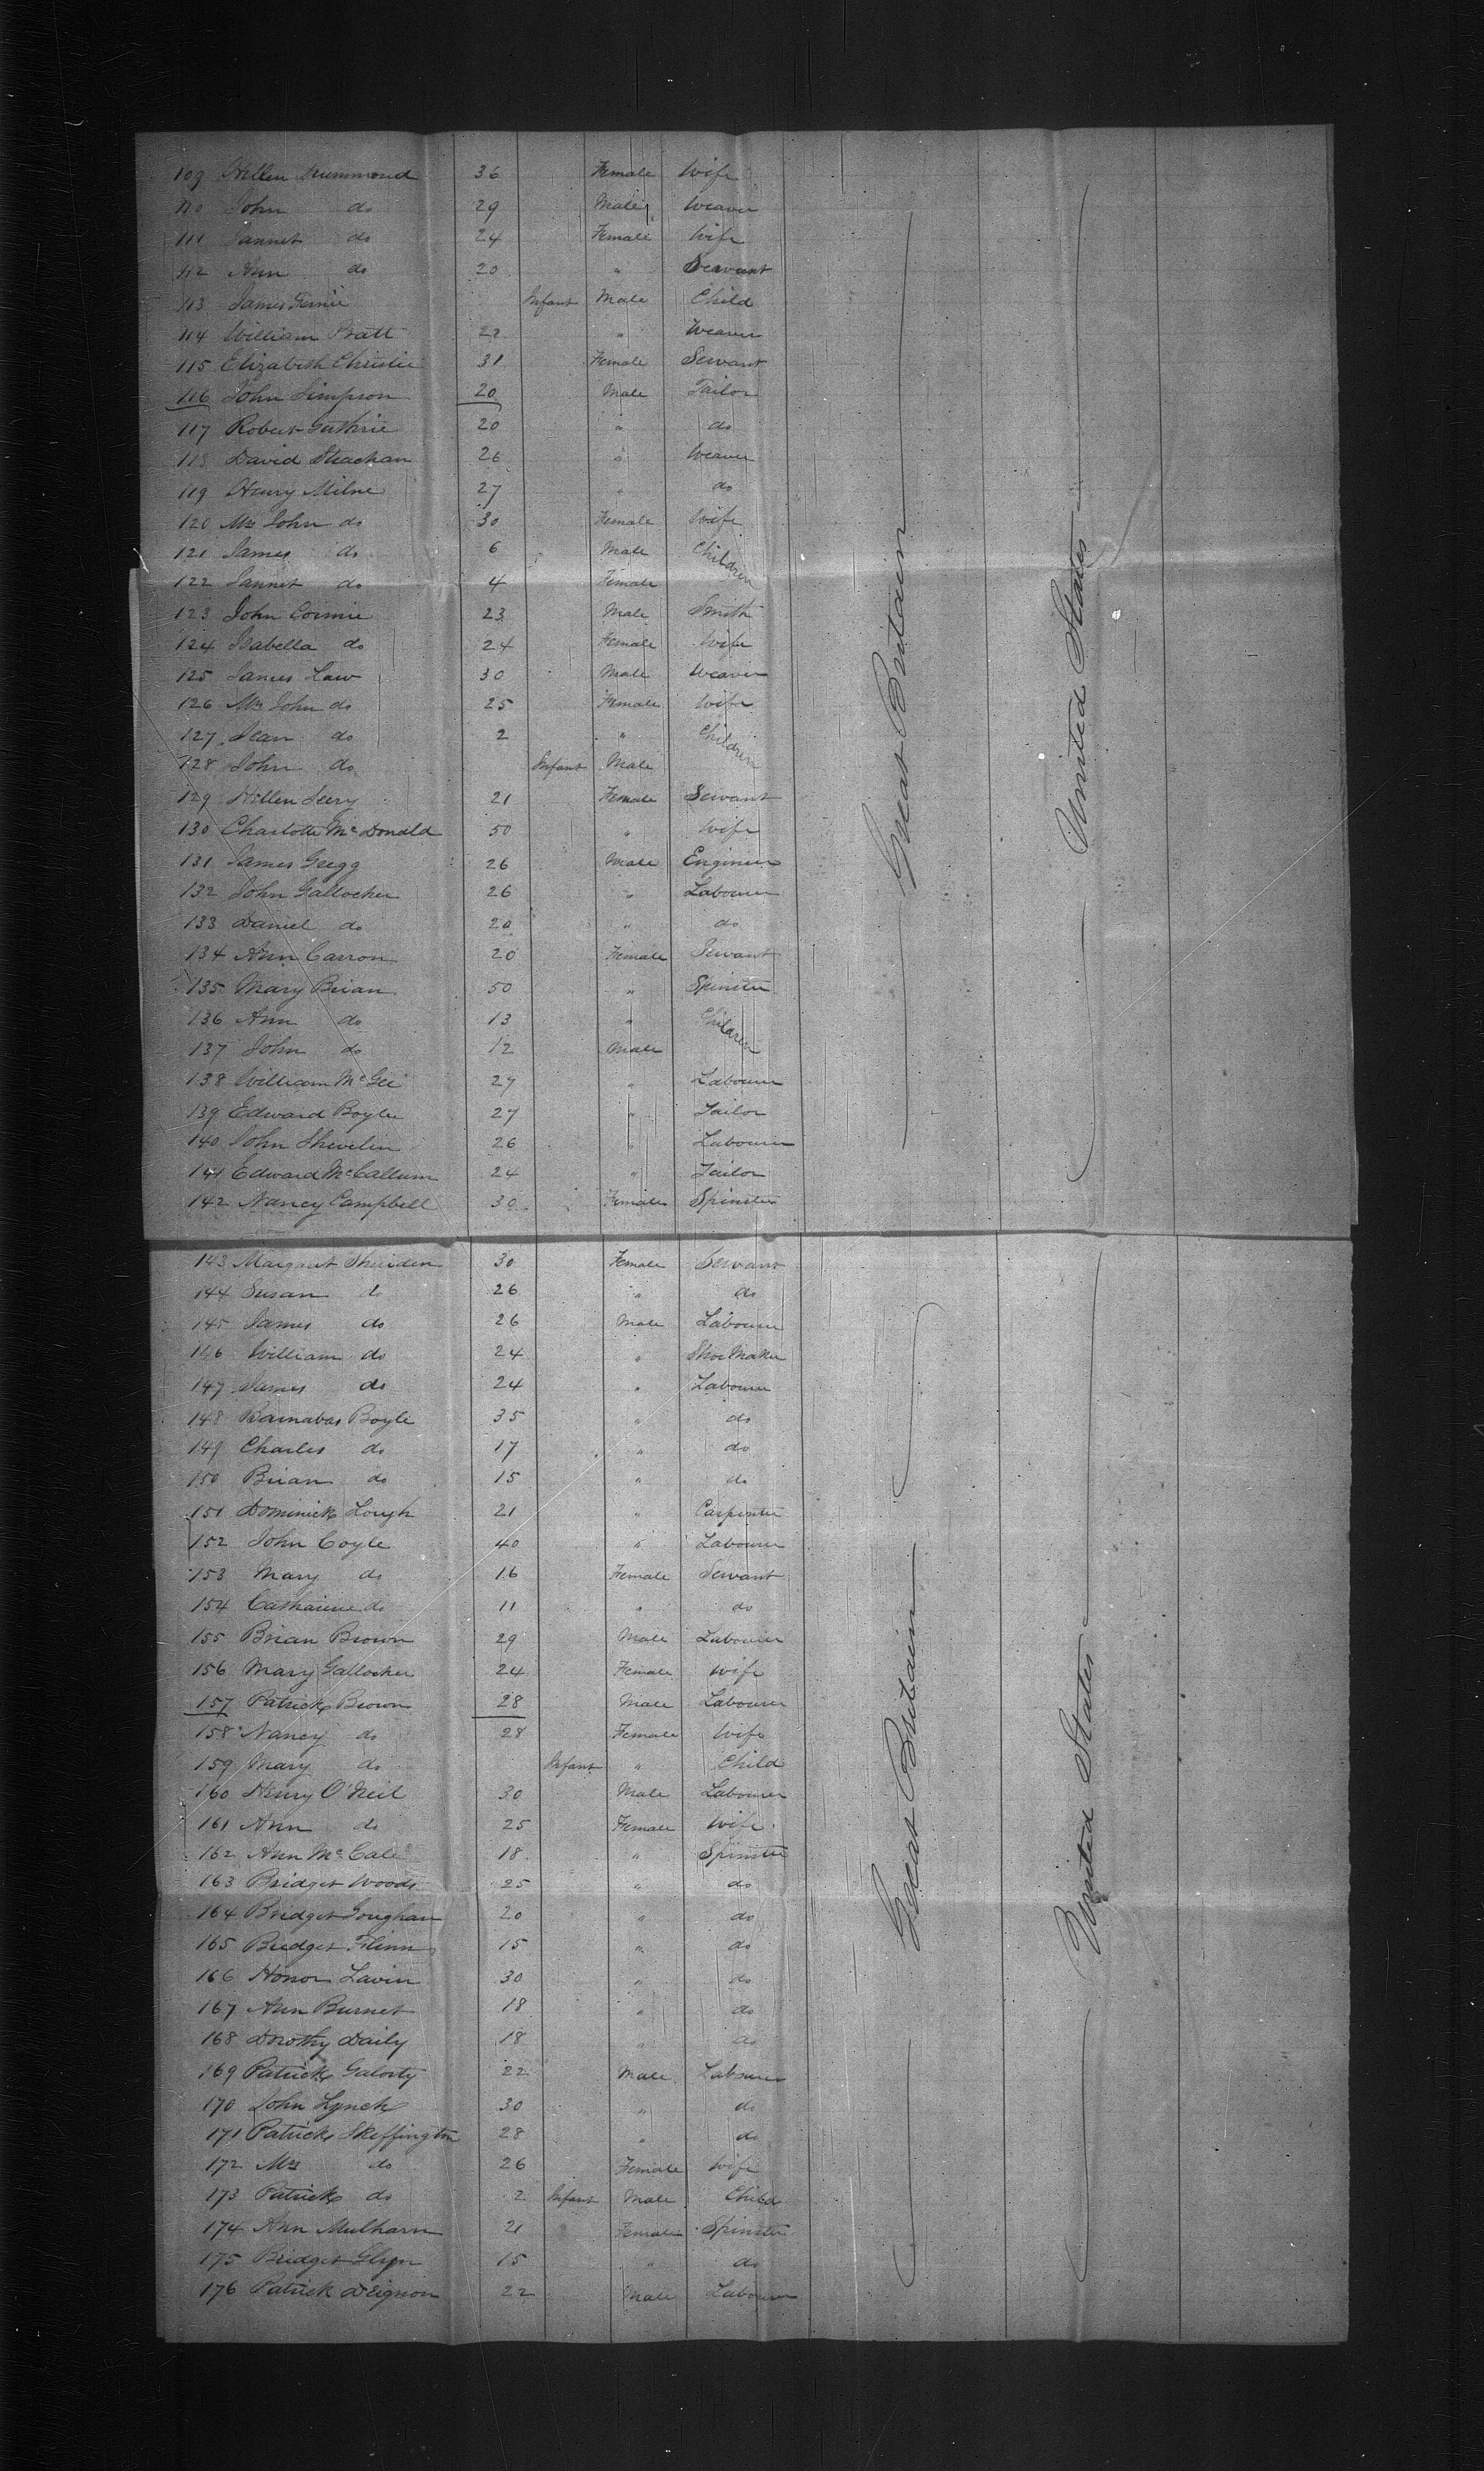 109 Hellen Drummond 36 Female Wife
110 John do 29 Male Weaver
111 Jannet do 24 Female Wife
112 Ann do 20 " Servant
113 James Fernie Infant Male Child
114 William Pratt 22 " Weaver
115 Elizabeth Christie 31 Female Servant
116 John Simpson 20 Male Tailor
117 Robert Guthrie 20 " do
118 David Strachan 26 " Weaver
119 Henry Milne 27 " do
120 Mrs John do 30 Female Wife
121 James do 6 Male Children
122 Jannet do 4 Female
123 John Cormie 23 Male Smith
124 Isabella do 24 Female Wife
125 James Law 30 Male Weaver
126 Mrs John do 25 Female Wife
127 Jean do 2 " Children
128 John do Infant Male
129 Hellen Seery 21 Female Servant
130 Charlotte McDonald 50 " Wife
131 James Gregg 26 Male Engineer
132 John Gallocher 26 " Labourer
133 Daniel do 20 " do
134 Ann Carron 20 Female Servant
135 Mary Brian 50 " Spinster
136 Ann do 13 " Children
137 John do 12 Male
138 William McGee 27 " Labourer
139 Edward Boyle 27 " Tailor
140 John Shevelin 26 " Labourer
141 Edward McCallum 24 " Tailor
142 Nancy Campbell 30 Female Spinster
Great Britain
United States
143 Margaret Sheriden 30 Female Servant
144 Susan do 26 " do
145 James do 26 Male Labourer
146 William do 24 " Shoe Maker
147 James do 24 " Labourer
148 Barnabas Boyle 35 " do
149 Charles do 17 " do
150 Brian do 15 " do
151 Dominick Lough 21 " Carpenter
152 John Coyle 40 " Labourer
153 Mary do 16 Female Servant
154 Catharine do 11 " do
155 Brian Brown 29 Male Labourer
156 Mary Gallocher 24 Female Wife
157 Patrick Brown 28 Male Labourer
158 Nancy do 28 Female Wife
159 Mary do Infant " Child
160 Henry O'Neil 30 Male Labourer
161 Ann do 25 Female Wife
162 Ann McCale 18 " Spinster
163 Bridget Woods 25 " do
164 Bridget Goughan 20 " do
165 Bridget Flinn 15 " do
166 Honor Lavin 30 " do
167 Ann Burnet 18 " do
168 Dorothy Daily 18 " do
169 Patrick Galorty 22 Male Labourer
170 John Lynch 30 " do
171 Patrick Skeffington 28 " do
172 Mrs do 26 Female Wife
173 Patrick do 2 Infant Male Child
174 Ann Mulharn 21 Female Spinster
175 Bridget Glyn 15 " do
176 Patrick Deignon 22 Male Labourer
Great Britain
United States